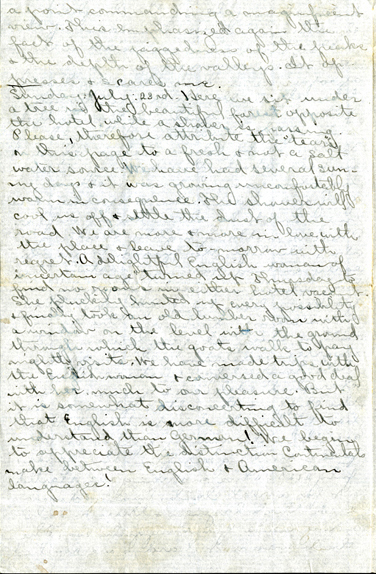 a point commanding a magnificent
view. This emphasized again the
fact of the jagged of the peaks
& the depth of the valleys. It op-
presses & scares me.
Sunday, July 23rd. Here we sit under
a tree in the beautiful forest opposite
the hotel while a shower is passing.
Please, therefore attribute the "tears"
on this page to a fresh & not a salt
water source. We have had several sun-
ny days & it was growing uncomfortably
warm in consequence. This shower will
cool us off & settle the dust of the
road. We are more & more in love with
the place & leave to-morrow with
regret. A delightful English woman of
turned up Thursday to
find no rooms in either hotel vacant.
She pluckily hunted up every possibility
& finally took an old with
a window on the level with the ground
through which the goats walk to pay
nightly visits. We have made trips with
the Englishwoman & conversed a good deal
with her much to our pleasure. But
it is somewhat disconcerting to find
that English is more difficult to
understand than German! We begin
to appreciate the distinction Continentals
make between English & American
languages!